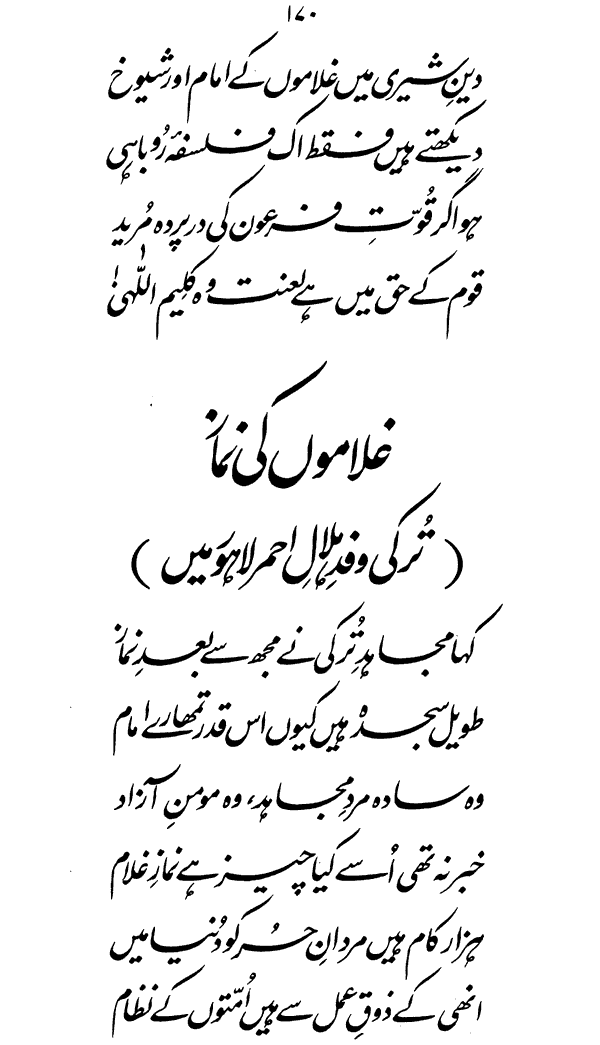 ۱۷۰
دینِ شیری میں غلاموں کے امام اور شیوخ
دیکھتے ہیں فقط اک فلسفۂ رُوباہی
ہو اگر قُوّتِ فرعون کی در پردہ مُرید
قوم کے حق میں ہے لعنت وہ کلیم اللّٰہی!
غلاموں کی نماز
( تُرکی وفدِ ہلالِ احمر لاہور میں )
کہا مجاہدِ تُرکی نے مجھ سے بعدِ نماز
طویل سجدہ ہیں کیوں اس قدر تمھارے امام
وہ سادہ مردِ مجاہد، وہ مومنِ آزاد
خبر نہ تھی اُسے کیا چیز ہے نمازِ غلام
ہزار کام ہیں مردانِ حُر کو دُنیا میں
انھی کے ذوقِ عمل سے ہیں اُمّتوں کے نظام